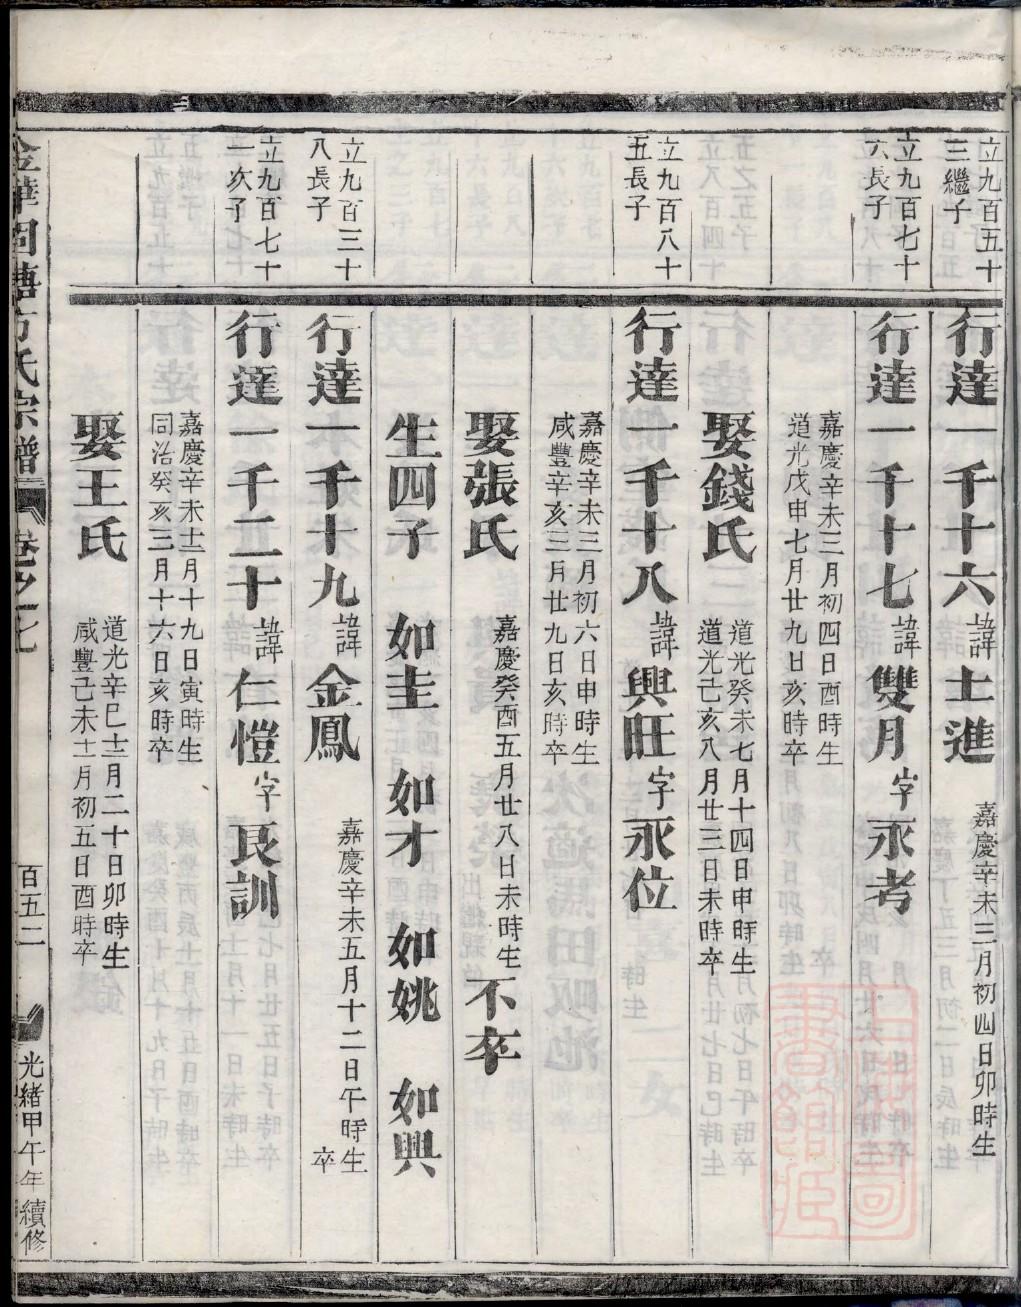 立九百五十
三繼子
行達一千十六諱士進
嘉慶辛未三月初四日卯時生
立九百七十
六長子
行達一千十七諱雙月字永考
嘉慶辛未三月初四日酉時生
道光戊申七月廿九日亥時卒
娶錢氏
道光癸未七月十四日申時生
道光己亥八月廿三日未時卒
立九百八十
五長子
行達一千十八諱興旺字永位
嘉慶辛未三月初六日申時生
咸豐辛亥三月廿九日亥時卒
娶張氏
嘉慶癸酉五月廿八日未時生
不卒
生四子 如圭 如才 如姚 如興
立九百三十
八長子
行達一千十九諱金鳳
嘉慶辛未五月十二日午時生
卒
立九百七十
一次子
行達一千二十諱仁愷字良訓
嘉慶辛未十二月十九日寅時生
同治癸亥三月十六日亥時卒
娶王氏
道光辛巳十二月二十日卯時生
咸豐己未十一月初五日酉時卒
方氏宗譜 卷之一七
百五二
光緒甲午年續修